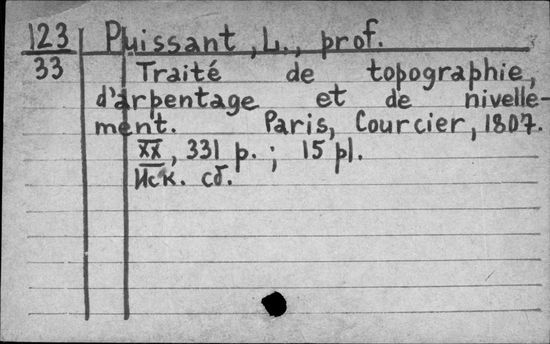 123 Puissant, L., prof.
33 Traité de topographie,
d'arpentage et de nivelle-
ment. Paris, Courcier, 1807.
XX, 331 p.; 15 pl.
Иск. сб.